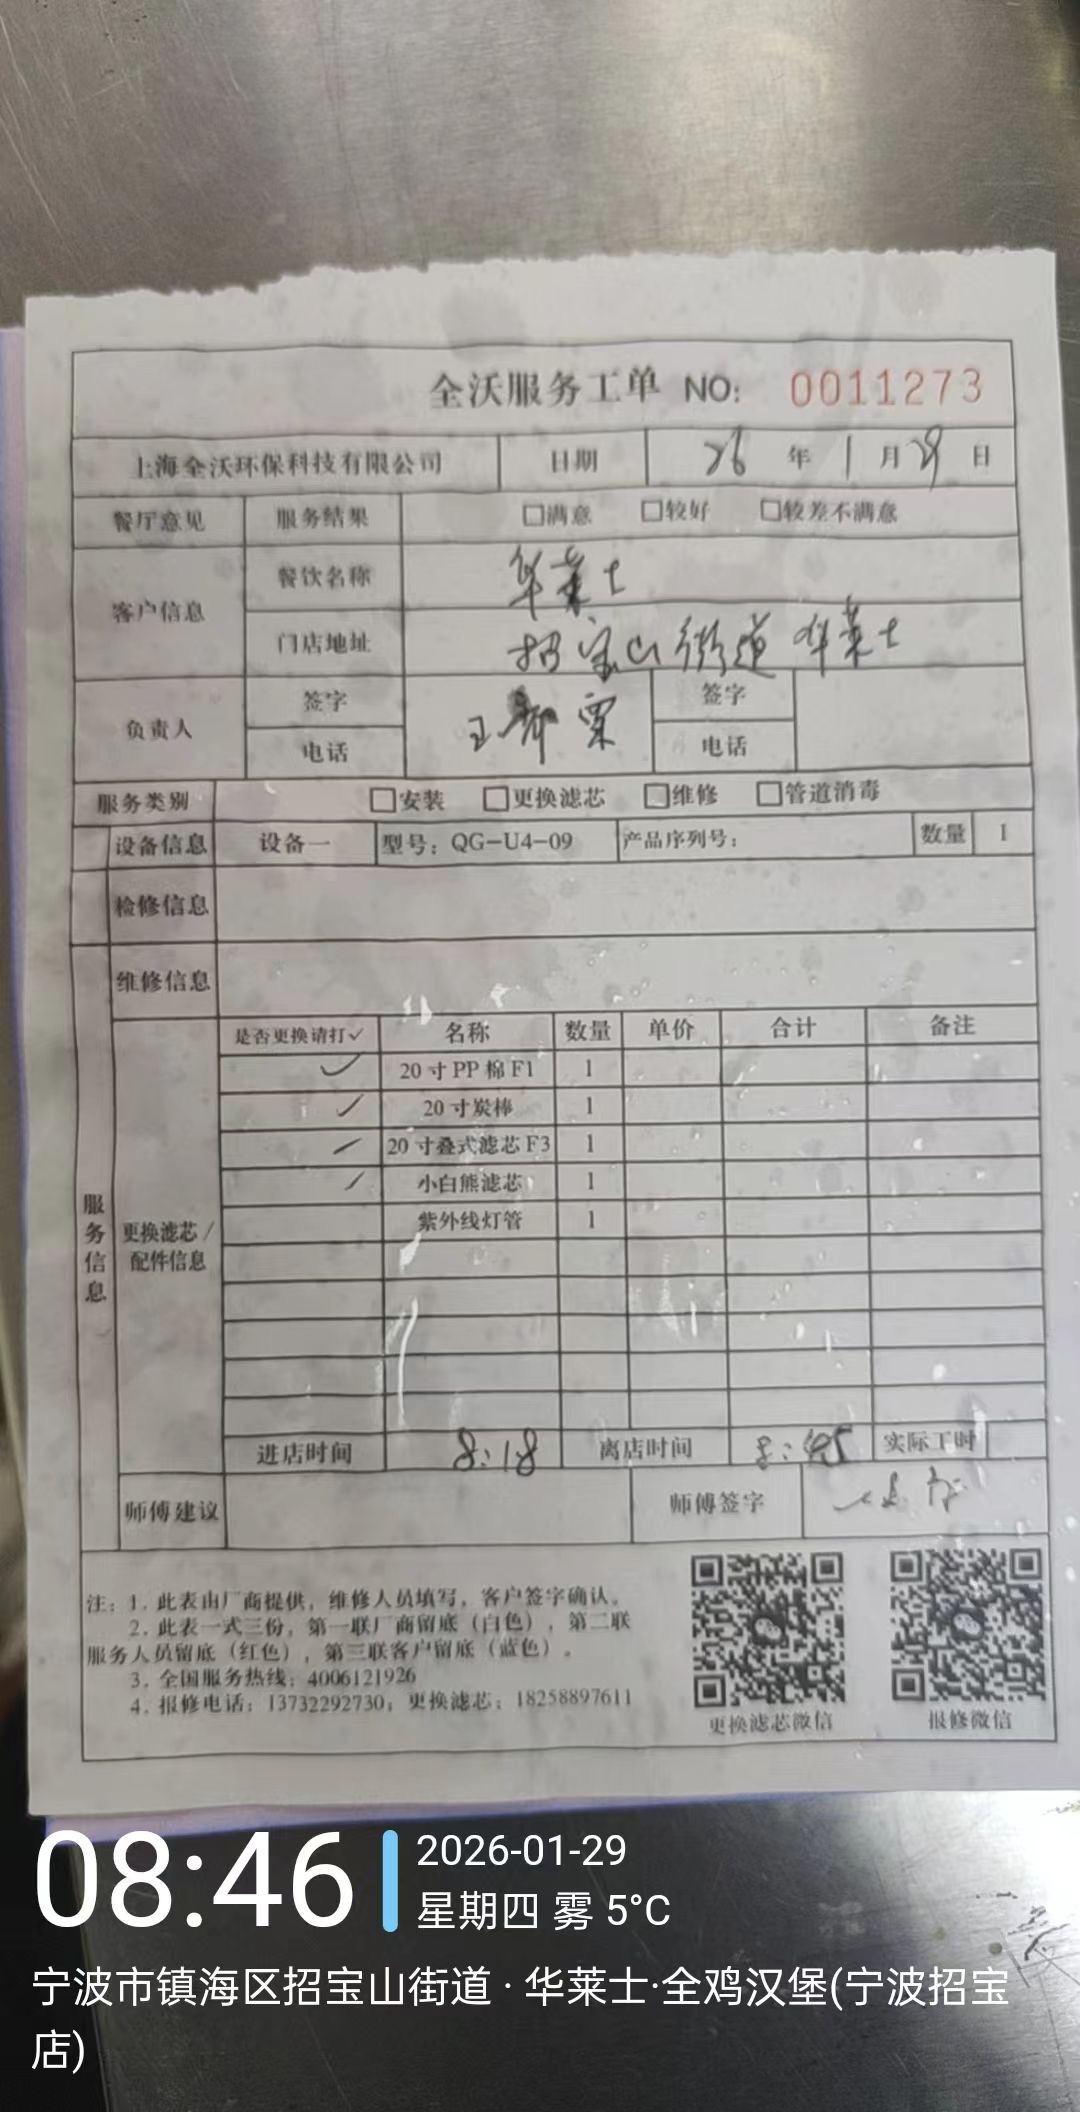 全沃服务工单 NO: 0011273
上海全沃环保科技有限公司 日期 26 年 1 月 29 日
餐厅意见 服务结果 □满意 □较好 □较差不满意
客户信息 餐饮名称 华莱士
门店地址 招宝山街道 华莱士
负责人 签字 签字
电话 电话
服务类别 □安装 □更换滤芯 □维修 □管道消毒
设备信息 设备一 型号: QG-U4-09 产品序列号: 数量 1
检修信息
维修信息
服务信息
更换滤芯/
配件信息
是否更换请打✓ 名称 数量 单价 合计 备注
✓ 20寸PP棉F1 1
✓ 20寸炭棒 1
✓ 20寸叠式滤芯F3 1
✓ 小白熊滤芯 1
紫外线灯管 1
进店时间 8:18 离店时间 8:45 实际工时
师傅建议 师傅签字
注: 1. 此表由厂商提供, 维修人员填写, 客户签字确认。
2. 此表一式三份, 第一联厂商留底(白色), 第二联
服务人员留底(红色), 第三联客户留底(蓝色)。
3. 全国服务热线: 4006121926
4. 报修电话: 13732292730; 更换滤芯: 18258897611
更换滤芯微信 报修微信
08:46
2026-01-29
星期四 雾 5°C
宁波市镇海区招宝山街道·华莱士·全鸡汉堡(宁波招宝
店)